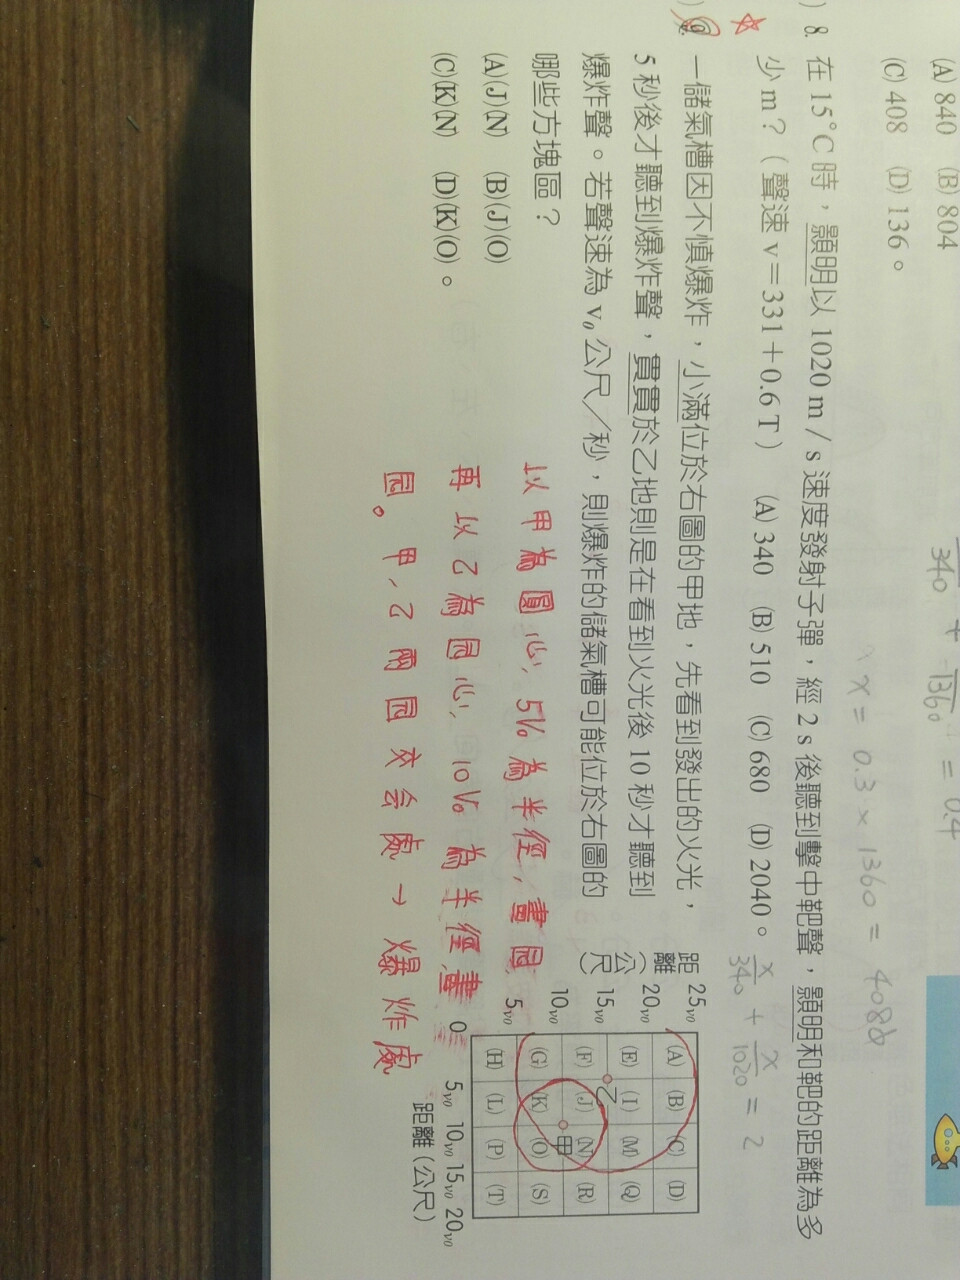 (A) 840 (B) 804
(C) 408 (D) 136。
340 + 1360 = 0.4
x = 0.3 × 1360 = 408
) 8. 在 15°C 時，顯明以 1020 m / s 速度發射子彈，經 2 s 後聽到擊中靶聲，顯明和靶的距離為多
少 m？（聲速 v＝331＋0.6 T） (A) 340 (B) 510 (C) 680 (D) 2040。
x/340 + x/1020 = 2
) 9. 一儲氣槽因不慎爆炸，小滿位於右圖的甲地，先看到發出的火光，
5 秒後才聽到爆炸聲，貫貫於乙地則是在看到火光後 10 秒才聽到
爆炸聲。若聲速為 v0 公尺／秒，則爆炸的儲氣槽可能位於右圖的
哪些方塊區？
(A)(J)(N) (B)(J)(O)
(C)(K)(N) (D)(K)(O)。
以甲為圓心，5V0為半徑，畫圓
再以乙為圓心，10V0為半徑，畫
圓。甲、乙兩圓交会處→爆炸處
距離（公尺）
25v0
20v0
15v0
10v0
5v0
0
(A) (B) (C) (D)
(E) (I) (M) (Q)
乙
(F) (J) (N) (R)
甲
(G) (K) (O) (S)
(H) (L) (P) (T)
5v0 10v0 15v0 20v0
距離（公尺）